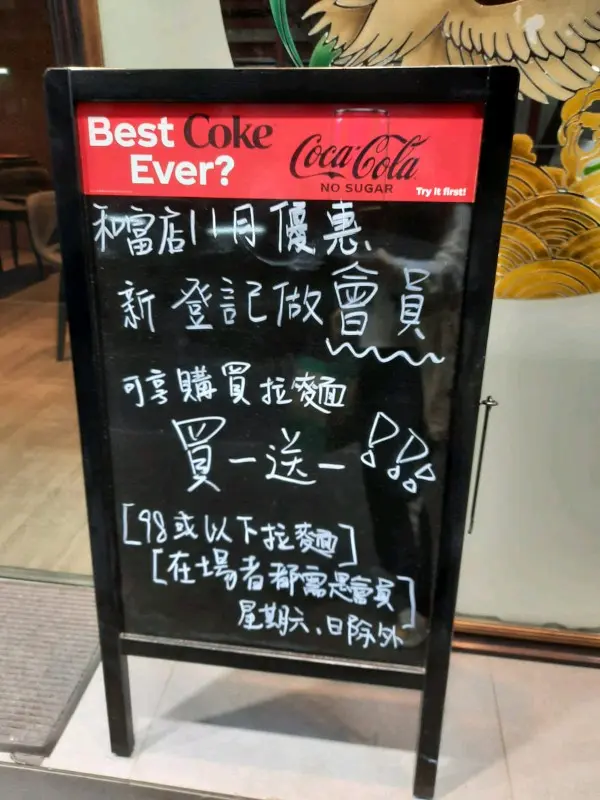 Best Coke Ever?
Coca-Cola
NO SUGAR
Try it first!
和富店11月優惠
新登記做會員
可享購買拉麵
買一送一!!!
[98或以下拉麵]
[在場者都需是會員]
星期六、日除外